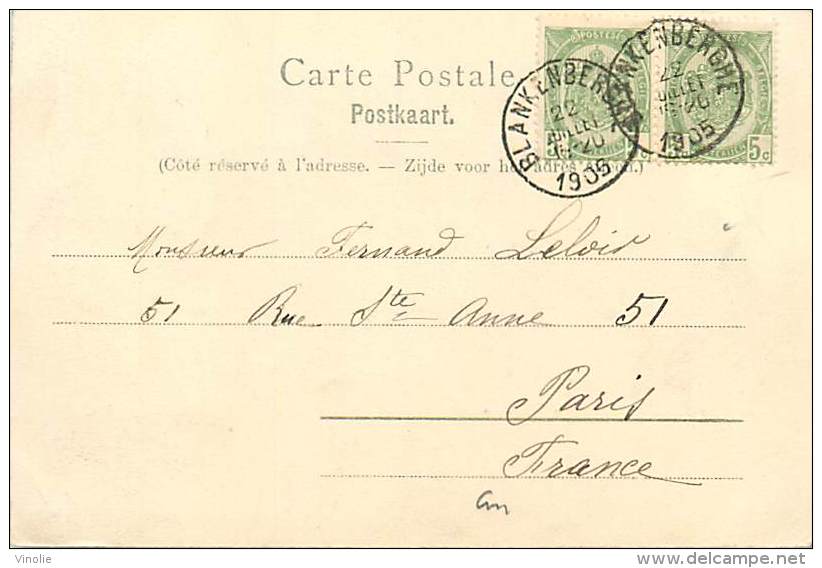 POSTES
Carte Postale
Postkaart.
BLANKENBERGHE
22
JUILLET
1905
BLANKENBERGHE
22
JUILLET
1905
5c
(Côté réservé à l'adresse. — Zijde voor het adres
Monsieur Fernand Leloir
51 Rue Ste Anne 51
Paris
France
Vinolie
delcampe.net